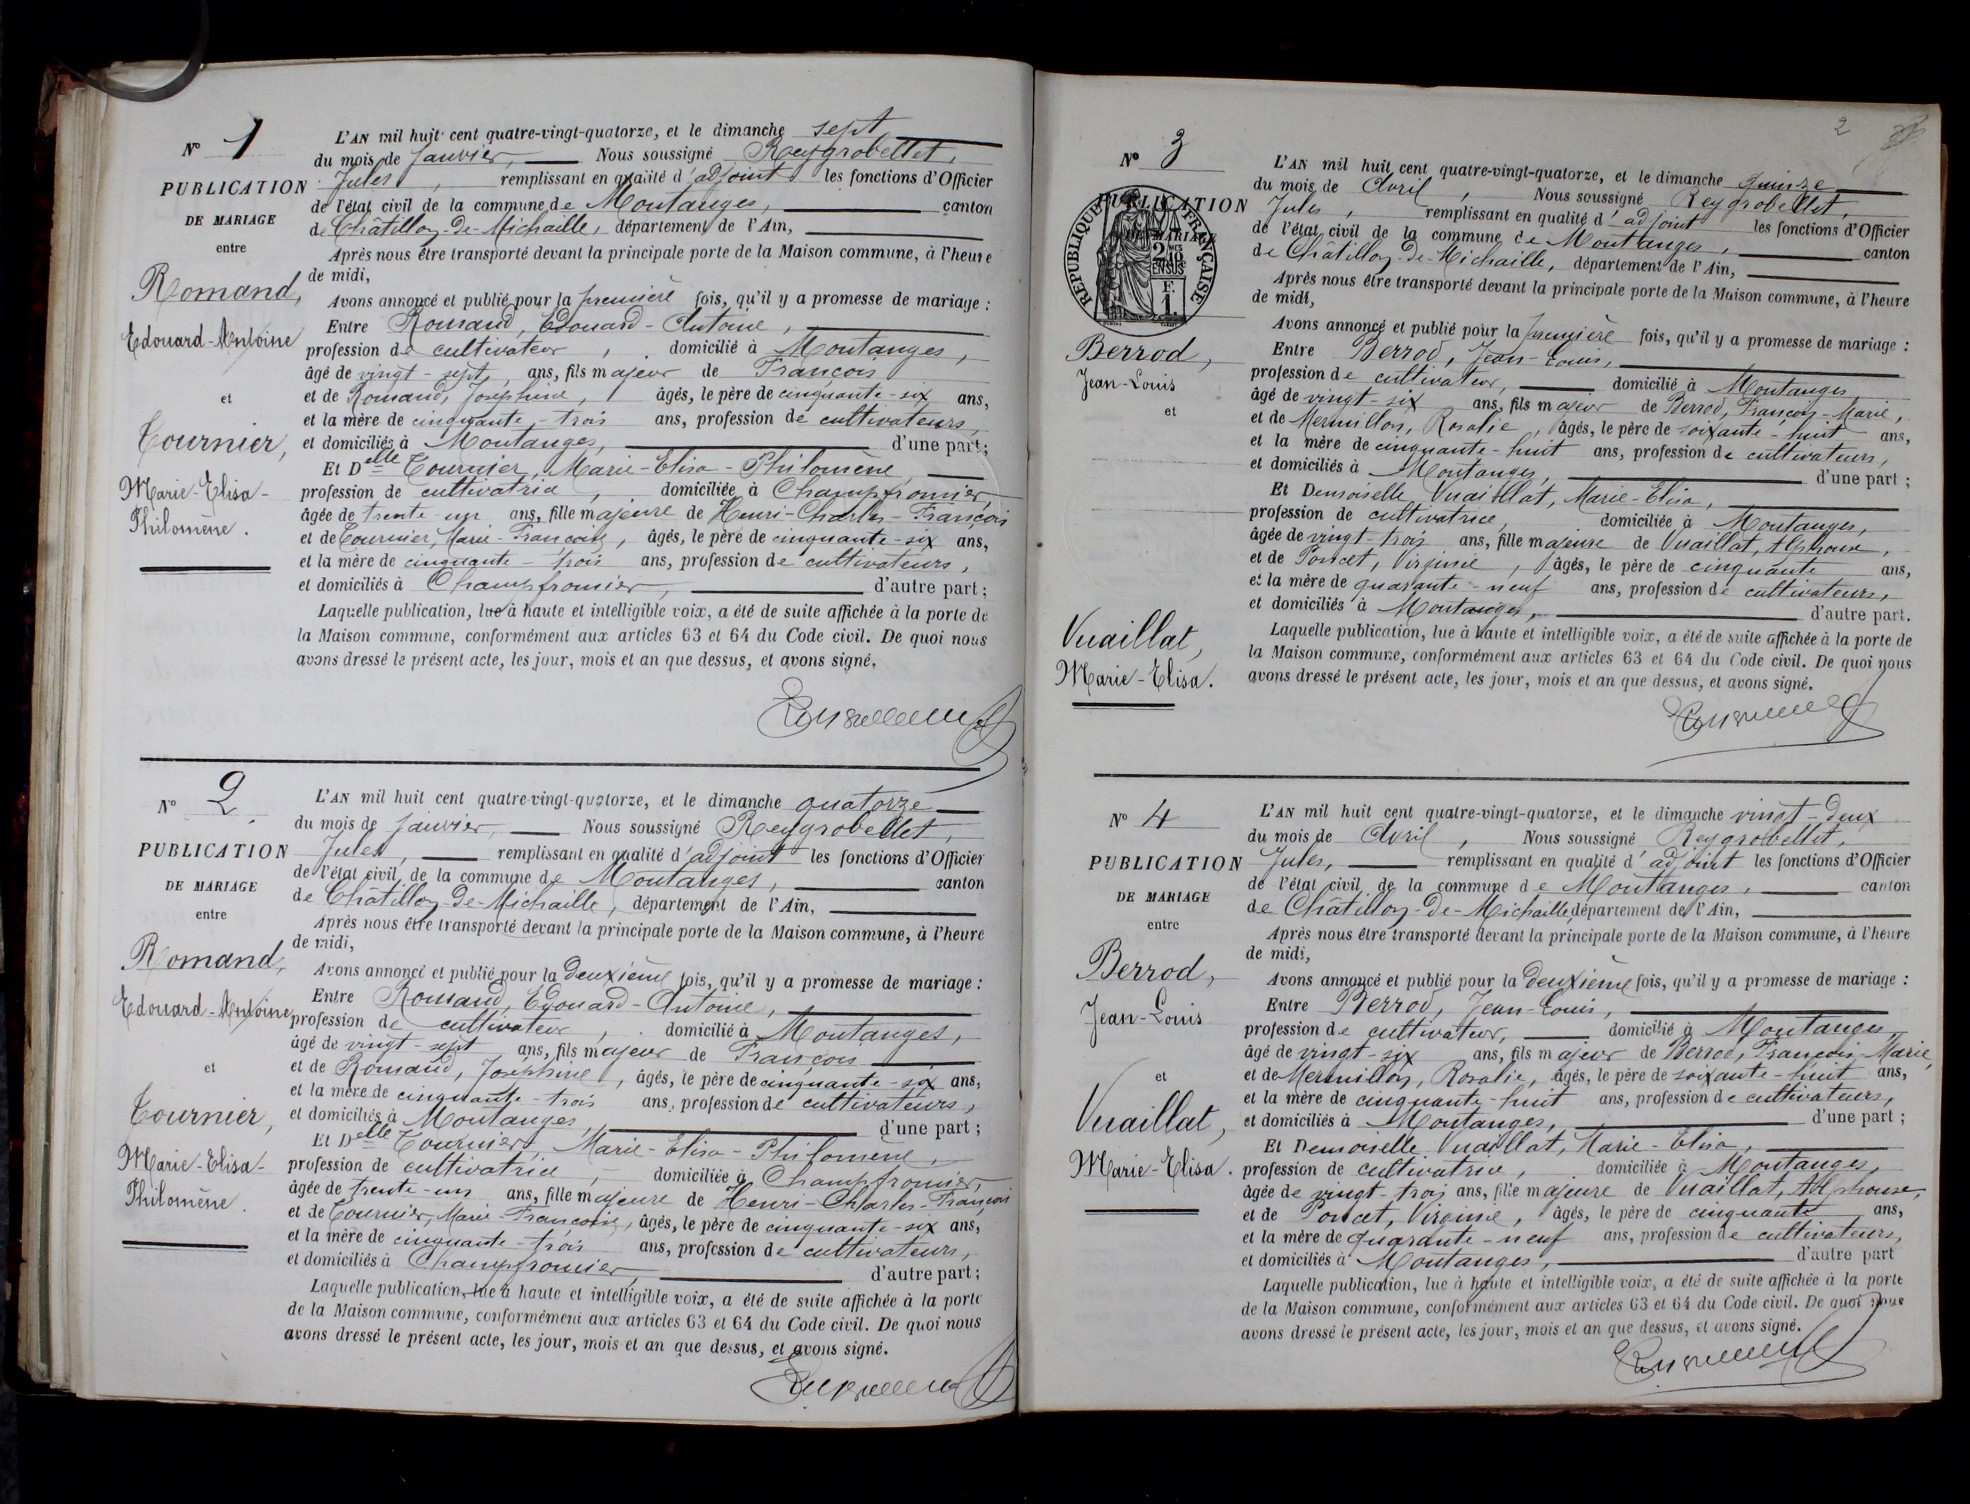 N° 1
PUBLICATION
DE MARIAGE
entre
Romand,
Edouard-Antoine
et
Tournier,
Marie-Elisa-
Philomène.
L'AN mil huit cent quatre-vingt-quatorze, et le dimanche sept
du mois de Janvier, Nous soussigné Reygrobellet,
Jules, remplissant en qualité d'adjoint les fonctions d'Officier
de l'état civil de la commune de Montanges, canton
de Châtillon-de-Michaille, département de l'Ain,
Après nous être transporté devant la principale porte de la Maison commune, à l'heure
de midi,
Avons annoncé et publié pour la première fois, qu'il y a promesse de mariage :
Entre Romand, Edouard-Antoine,
profession de cultivateur, domicilié à Montanges,
âgé de vingt-sept, ans, fils majeur de François
et de Romand, Joséphine, âgés, le père de cinquante-six ans,
et la mère de cinquante-trois ans, profession de cultivateurs,
et domiciliés à Montanges, d'une part;
Et Delle Tournier, Marie-Elisa-Philomène
profession de cultivatrice, domiciliée à Champfromier,
âgée de trente-un ans, fille majeure de Henri-Charles-François
et de Tournier, Marie-Françoise, âgés, le père de cinquante-six ans,
et la mère de cinquante-trois ans, profession de cultivateurs,
et domiciliés à Champfromier, d'autre part;
Laquelle publication, lue à haute et intelligible voix, a été de suite affichée à la porte de
la Maison commune, conformément aux articles 63 et 64 du Code civil. De quoi nous
avons dressé le présent acte, les jour, mois et an que dessus, et avons signé.
N° 2.
PUBLICATION
DE MARIAGE
entre
Romand,
Edouard-Antoine
et
Tournier,
Marie-Elisa-
Philomène.
L'AN mil huit cent quatre-vingt-quatorze, et le dimanche quatorze
du mois de Janvier, Nous soussigné Reygrobellet,
Jules, remplissant en qualité d'adjoint les fonctions d'Officier
de l'état civil de la commune de Montanges, canton
de Châtillon-de-Michaille, département de l'Ain,
Après nous être transporté devant la principale porte de la Maison commune, à l'heure
de midi,
Avons annoncé et publié pour la deuxième fois, qu'il y a promesse de mariage :
Entre Romand, Edouard-Antoine,
profession de cultivateur, domicilié à Montanges,
âgé de vingt-sept ans, fils majeur de François
et de Romand, Joséphine, âgés, le père de cinquante-six ans,
et la mère de cinquante-trois ans, profession de cultivateurs,
et domiciliés à Montanges, d'une part ;
Et Delle Tournier, Marie-Elisa-Philomène,
profession de cultivatrice, domiciliée à Champfromier,
âgée de trente-un ans, fille majeure de Henri-Charles-François
et de Tournier, Marie-Françoise, âgés, le père de cinquante-six ans,
et la mère de cinquante-trois ans, profession de cultivateurs,
et domiciliés à Champfromier, d'autre part ;
Laquelle publication, lue à haute et intelligible voix, a été de suite affichée à la porte
de la Maison commune, conformément aux articles 63 et 64 du Code civil. De quoi nous
avons dressé le présent acte, les jour, mois et an que dessus, et avons signé.
2
N° 3
PUBLICATION
MARIAGE
RÉPUBLIQUE FRANÇAISE
2/10 EN SUS
F. 1.
Berrod,
Jean-Louis
et
Vuaillat,
Marie-Elisa.
L'AN mil huit cent quatre-vingt-quatorze, et le dimanche quinze
du mois de Avril, Nous soussigné Reygrobellet,
Jules, remplissant en qualité d'adjoint les fonctions d'Officier
de l'état civil de la commune de Montanges, canton
de Châtillon-de-Michaille, département de l'Ain,
Après nous être transporté devant la principale porte de la Maison commune, à l'heure
de midi,
Avons annoncé et publié pour la première fois, qu'il y a promesse de mariage :
Entre Berrod, Jean-Louis,
profession de cultivateur, domicilié à Montanges
âgé de vingt-six ans, fils majeur de Berrod, François-Marie,
et de Mermillon, Rosalie, âgés, le père de soixante-huit ans,
et la mère de cinquante-huit ans, profession de cultivateurs,
et domiciliés à Montanges, d'une part ;
Et Demoiselle Vuaillat, Marie-Elisa,
profession de cultivatrice, domiciliée à Montanges,
âgée de vingt-trois ans, fille majeure de Vuaillat, Alphonse,
et de Poncet, Virginie, âgés, le père de cinquante ans,
et la mère de quarante-neuf ans, profession de cultivateurs,
et domiciliés à Montanges, d'autre part.
Laquelle publication, lue à haute et intelligible voix, a été de suite affichée à la porte de
la Maison commune, conformément aux articles 63 et 64 du Code civil. De quoi nous
avons dressé le présent acte, les jour, mois et an que dessus, et avons signé.
N° 4
PUBLICATION
DE MARIAGE
entre
Berrod,
Jean-Louis
et
Vuaillat,
Marie-Elisa.
L'AN mil huit cent quatre-vingt-quatorze, et le dimanche vingt-deux
du mois de Avril, Nous soussigné Reygrobellet,
Jules, remplissant en qualité d'adjoint les fonctions d'Officier
de l'état civil de la commune de Montanges, canton
de Châtillon-de-Michaille, département de l'Ain,
Après nous être transporté devant la principale porte de la Maison commune, à l'heure
de midi,
Avons annoncé et publié pour la deuxième fois, qu'il y a promesse de mariage :
Entre Berrod, Jean-Louis,
profession de cultivateur, domicilié à Montanges,
âgé de vingt-six ans, fils majeur de Berrod, François-Marie,
et de Mermillon, Rosalie, âgés, le père de soixante-huit ans,
et la mère de cinquante-huit ans, profession de cultivateurs,
et domiciliés à Montanges, d'une part ;
Et Demoiselle Vuaillat, Marie-Elisa,
profession de cultivatrice, domiciliée à Montanges,
âgée de vingt-trois ans, fille majeure de Vuaillat, Alphonse,
et de Poncet, Virginie, âgés, le père de cinquante ans,
et la mère de quarante-neuf ans, profession de cultivateurs,
et domiciliés à Montanges, d'autre part
Laquelle publication, lue à haute et intelligible voix, a été de suite affichée à la porte
de la Maison commune, conformément aux articles 63 et 64 du Code civil. De quoi nous
avons dressé le présent acte, les jour, mois et an que dessus, et avons signé.